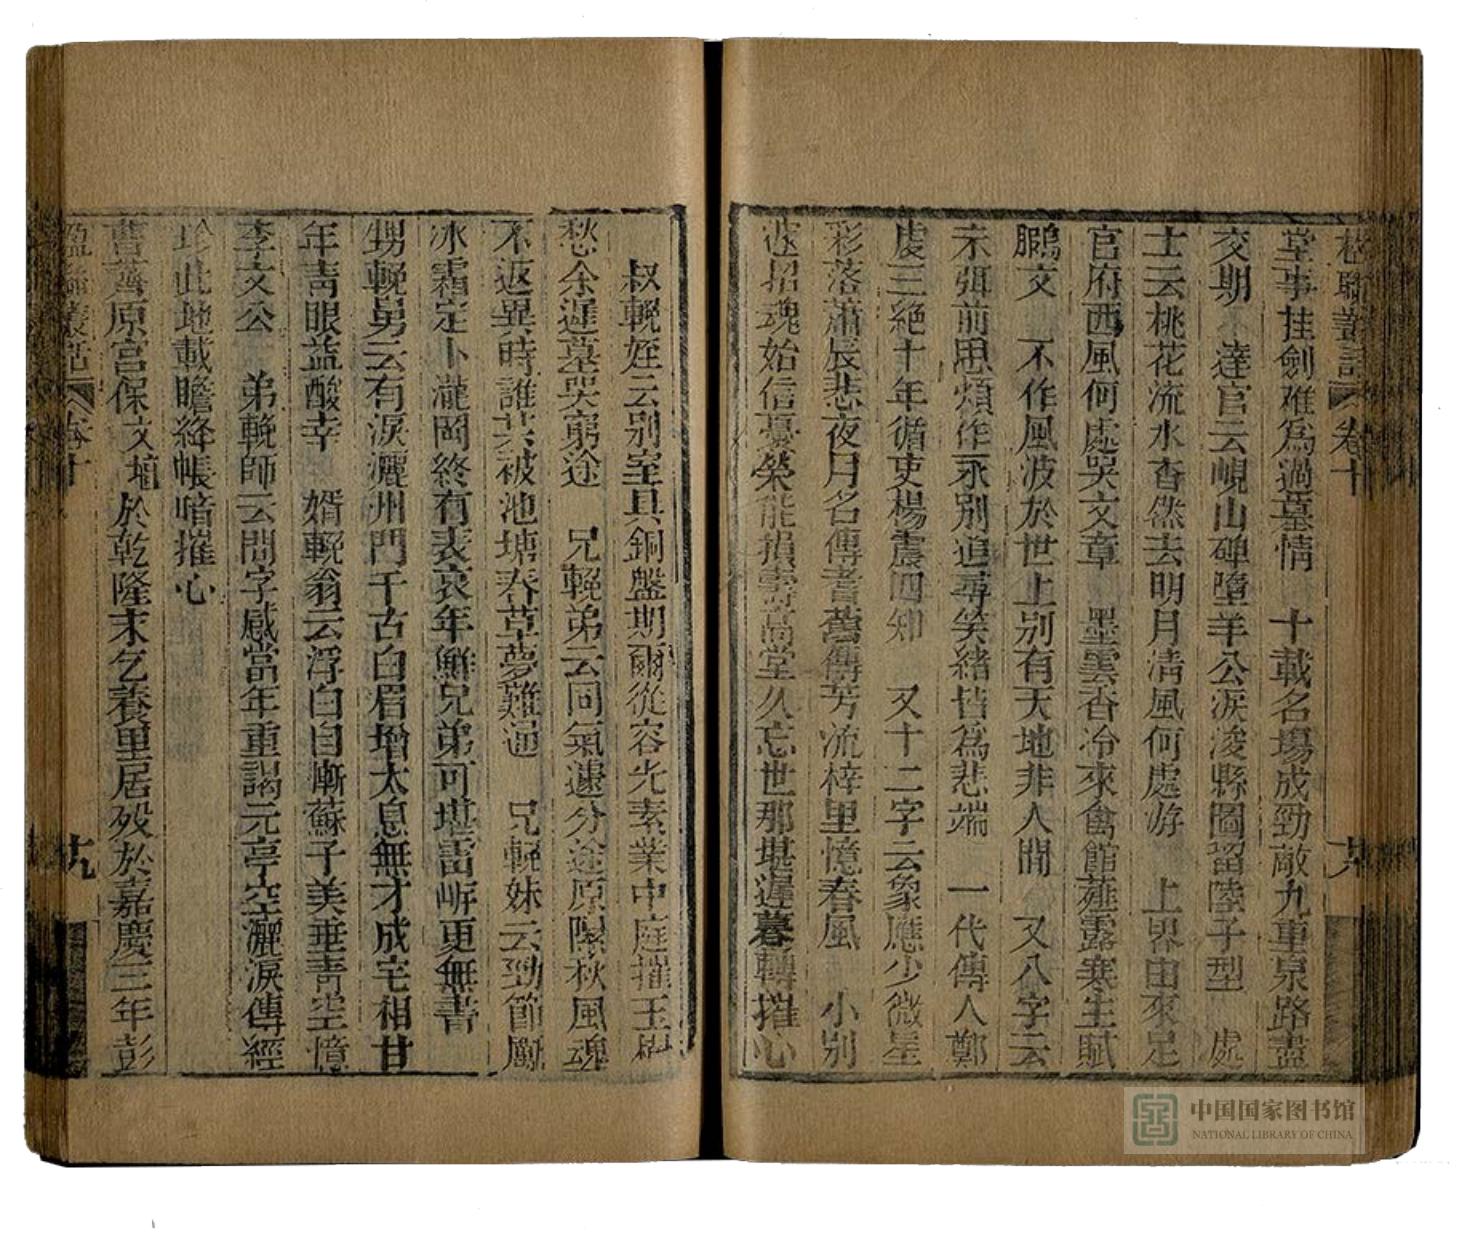 楹聯叢話 卷十 十八
堂事挂劍难為過墓情 十載名場成勁敵九重泉路盡
交期 達官云峴山碑墮羊公淚浚縣圖留陸子型 處
士云桃花流水杳然去明月清風何處游 上界由來足
官府西風何處哭文章 墨雲香冷來禽館薤露寒生賦
鵩文 不作風波於世上別有天地非人間 又八字云
未弭前思煩作永別追尋笑緒皆為悲端 一代傳人鄭
虔三絶十年循吏楊震四知 又十二字云象應少微星
彩落蕭辰悲夜月名傳耆舊傳芳流梓里憶春風 小別
遽招魂始信憂榮能損壽高堂久忘世那堪遲暮轉摧心
叔輓姪云別室具銅盤期爾從容光素業中庭摧玉樹
愁余遲墓哭窮途 兄輓弟云同氣遽分途原隰秋風魂
不返異時誰共被池塘春草夢難通 兄輓妹云勁節勵
冰霜定卜瀧岡終有表衰年鮮兄弟可堪雷岍更無書
甥輓舅云有淚灑州門千古白眉增太息無才成宅相甘
年靑眼益酸辛 婿輓翁云浮白自慚蘇子美垂靑空憶
李文公 弟輓師云問字感當年重謁元亭空灑淚傳經
珍此地載瞻絳帳暗摧心
曹薺原宮保文埴於乾隆末乞養里居殁於嘉慶三年彭
楹聯叢話 卷十 十九
中国国家图书馆
NATIONAL LIBRARY OF CHINA